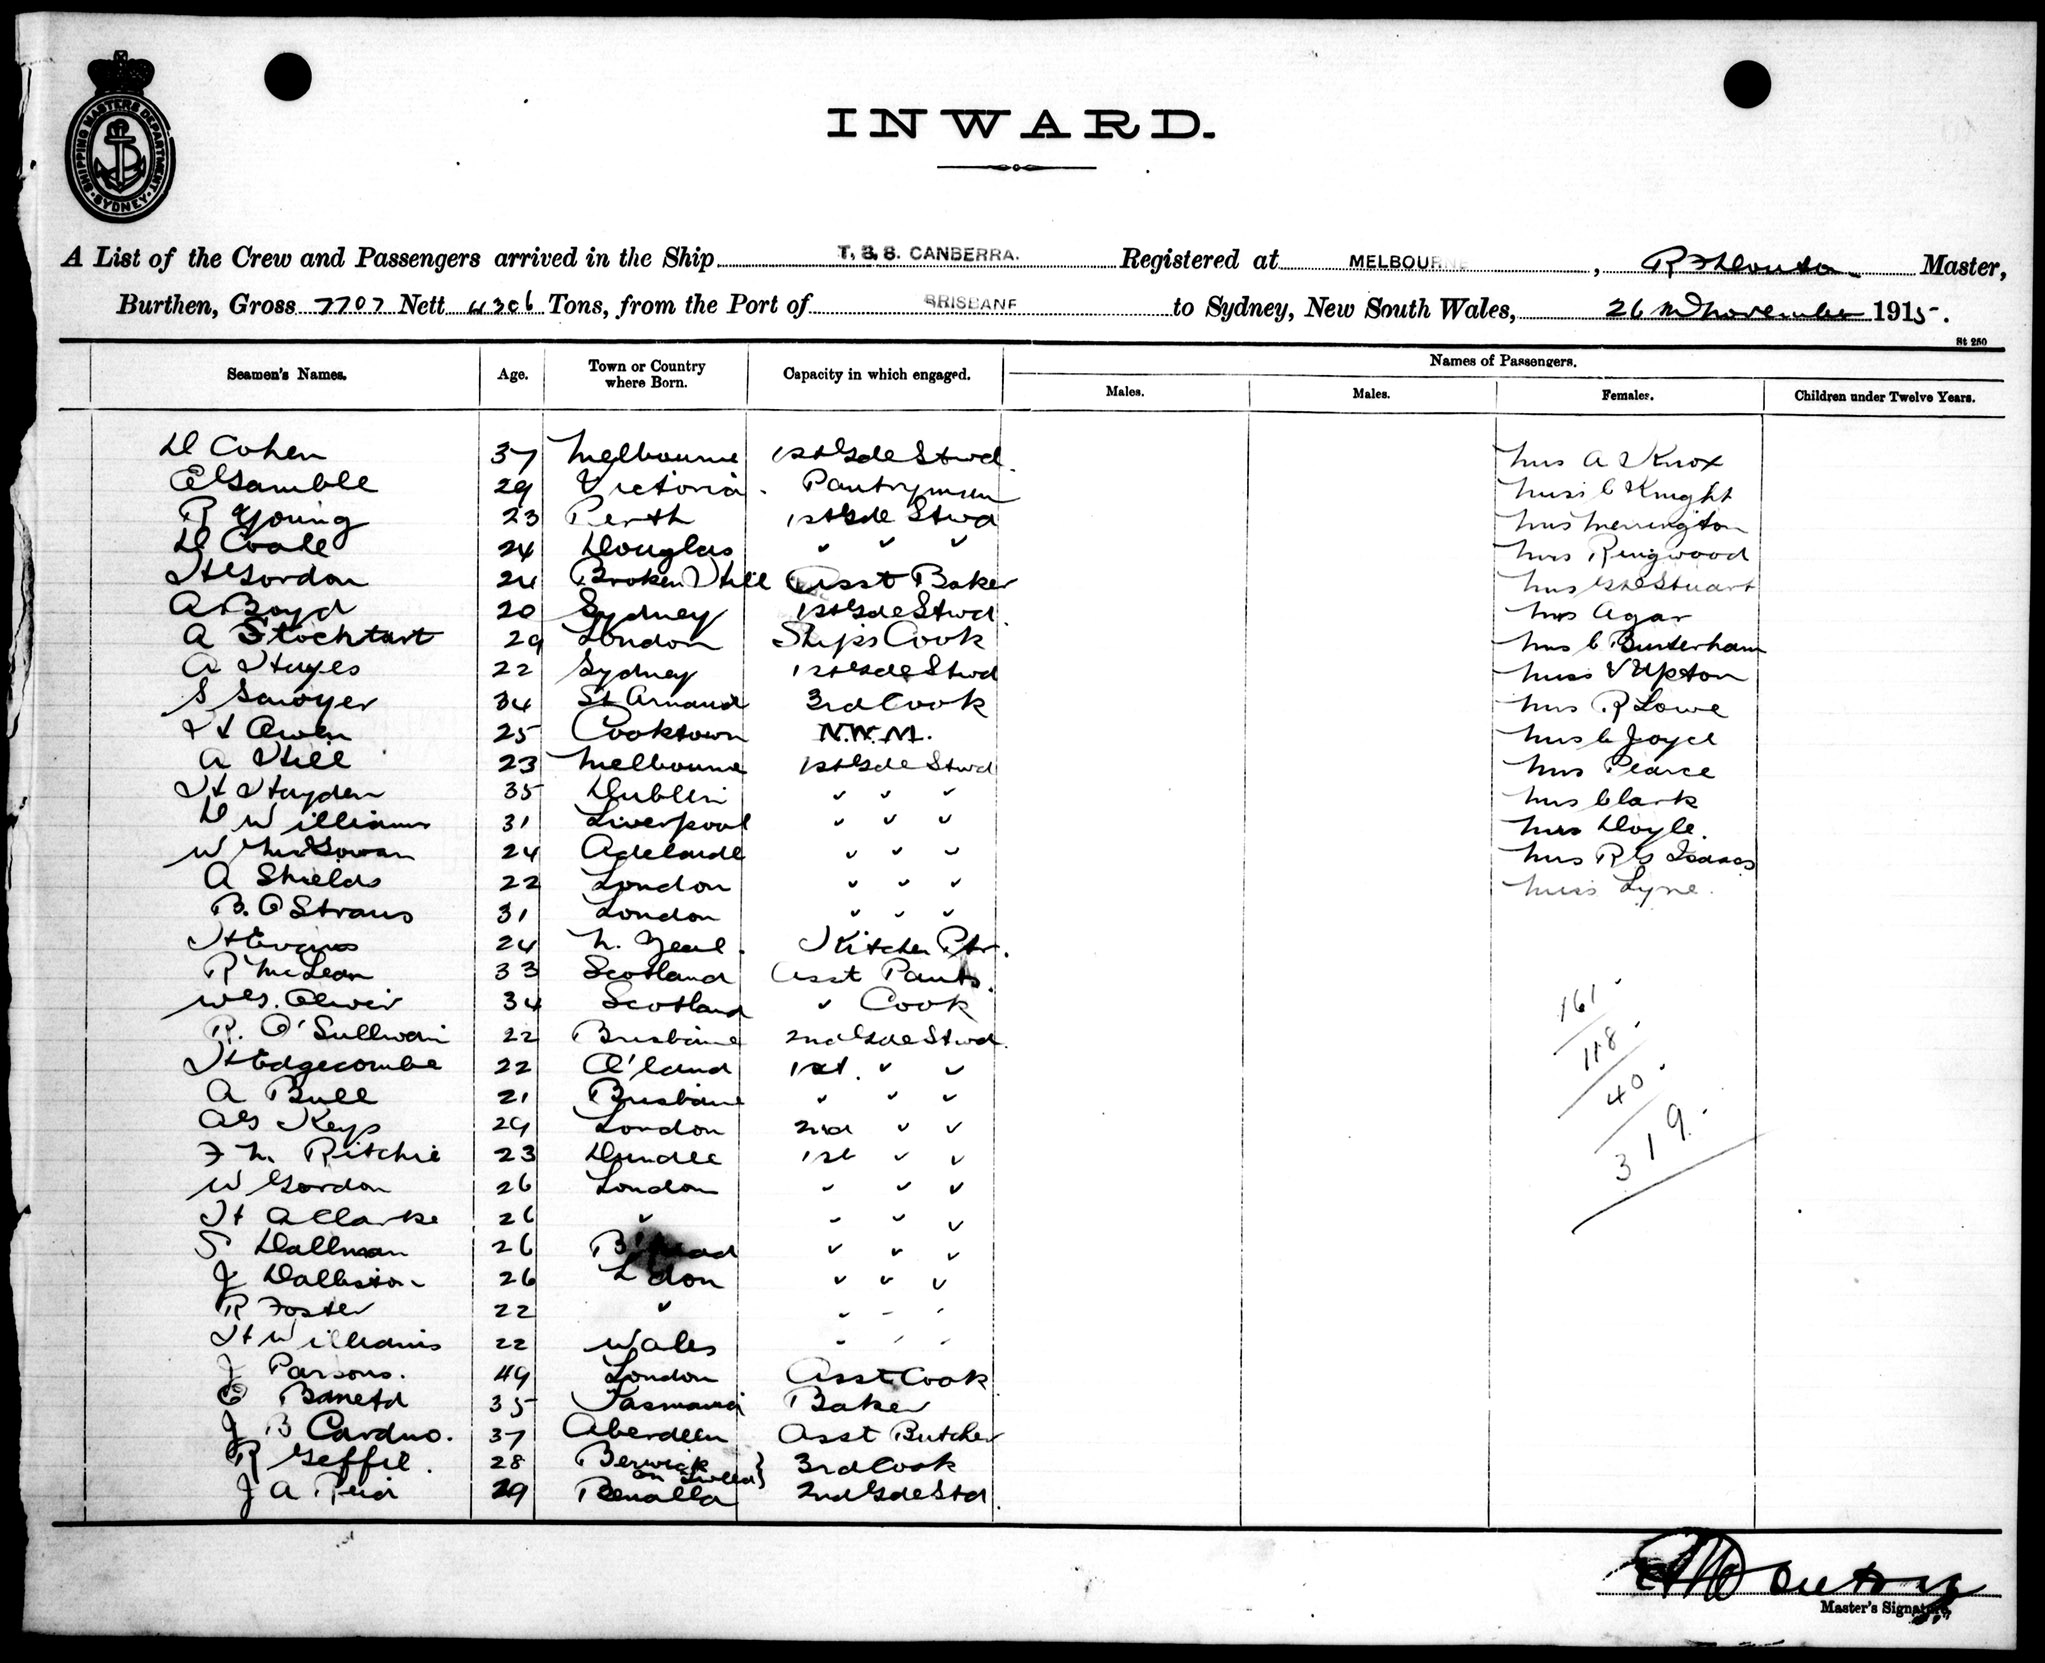 SHIPPING MASTERS DEPARTMENT
SYDNEY
INWARD.
A List of the Crew and Passengers arrived in the Ship T. S. S. CANBERRA. Registered at MELBOURNE, Master,
Burthen, Gross 7707 Nett 4306 Tons, from the Port of BRISBANE to Sydney, New South Wales, 26 November 1915.
St 250
Seamen's Names. Age. Town or Country where Born. Capacity in which engaged. Names of Passengers.
Males. Males. Females. Children under Twelve Years.
D Cohen 37 Melbourne 1st Gde Stwd. Mrs A Knox
E Gamble 29 Victoria. Pantryman Miss C Knight
R Young 23 Perth 1st Gde Stwd Mrs Merrington
D Coale 24 Douglas " " " Mrs Ringwood
H Gordon 24 Broken Hill Asst Baker Mrs Stuart
A Boyd 20 Sydney 1st Gde Stwd. Mrs Agar
A Stockhart 29 London Ships Cook Mrs C Busterham
A Hayes 22 Sydney 1st Gde Stwd Miss V Upton
S Sawyer 34 St Arnaud 3rd Cook Mrs R Lowe
H Owen 25 Cooktown N.W.M. Mrs C Joyce
A Hill 23 Melbourne 1st Gde Stwd Mrs Pearce
H Hayden 35 Dublin " " " Mrs Clark
D Williams 31 Liverpool " " " Mrs Doyle.
W McGowan 24 Adelaide " " " Mrs R G Isaacs
A Shields 22 London " " " Miss Lyne.
B. O Straus 31 London " " "
H Evans 24 N. Zeal. Kitchen Ptr.
R McLean 33 Scotland Asst Pants.
W G. Oliver 34 Scotland " Cook
R. O'Sullivan 22 Brisbane 2nd Gde Stwd.
H Edgecombe 22 Q'land 1st. " "
A Bull 21 Brisbane " " "
A G Keys 29 London 2nd " "
F N. Ritchie 23 Dundee 1st " "
W Gordon 26 London " " "
H A Clarke 26 " " " "
S Dallman 26 " " "
J Dalliston 26 L don " " "
R Foster 22 " " " "
H Williams 22 Wales " " "
J Parsons. 49 London Asst Cook
E 35 Tasmania Baker
J B Carduo. 37 Aberdeen Asst Butcher
R Geffie. 28 Berwick on Tweed } 3rd Cook
J A Reid 29 Benalla 2nd Gde Std.
161
118
40
319.
Master's Signature.